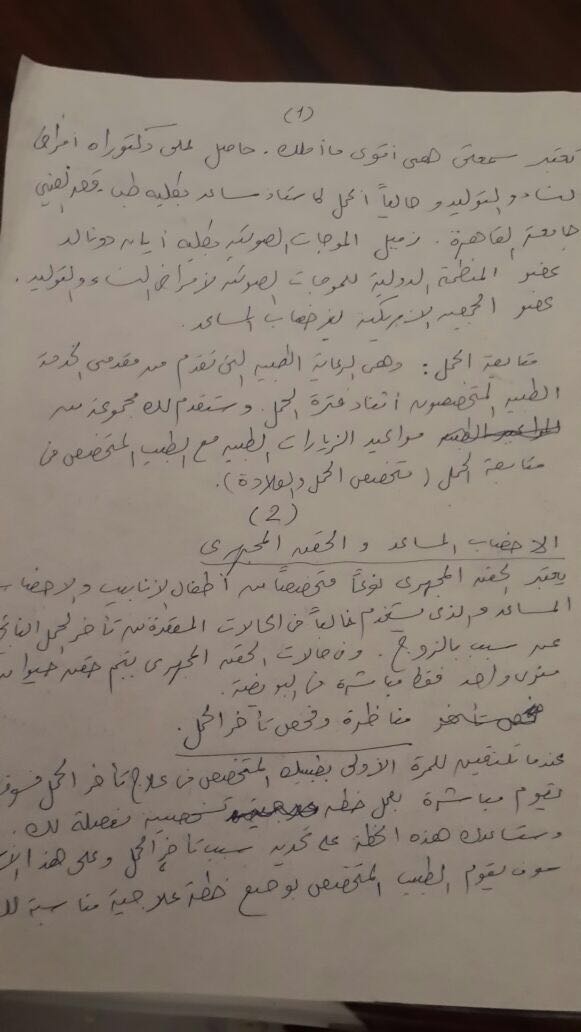 (1)
تعتبر سمعتى هى أقوى ما أملك. حاصل على دكتوراه أمراض
النساء والتوليد و حالياً أعمل كأستاذ مساعد بكلية طب قصر العيني
جامعة القاهرة. زميل الموجات الصوتية بكلية أيان دونالد
عضو المنظمة الدولية للموجات الصوتية لأمراض النساء والتوليد.
عضو الجمعية الأمريكية للإخصاب المساعد.
متابعة الحمل: وهى الرعاية الطبية التى تقدم من مقدمى الخدمة
الطبية المتخصصون أثناء فترة الحمل. وستقدم لك مجموعة من
مواعيد الزيارات الطبية مع الطبيب المتخصص فى
متابعة الحمل (متخصص الحمل والولادة).
(2)
الاخصاب المساعد و الحقن المجهرى
يعتبر الحقن المجهرى نوعاً متخصصاً من أطفال الأنابيب والاخصاب
المساعد والذى يستخدم غالباً فى الحالات المعقدة من تأخر الحمل
عن سبب بالزوج. وفى حالات الحقن المجهرى يتم حقن حيوان
منوى واحد فقط مباشرة فى البويضة.
مناظرة وفحص تأخر الحمل.
عندما تلتقين للمرة الأولى بطبيبك المتخصص فى علاج تأخر الحمل فسوف
يقوم مباشرة بعمل خطة تشخيصية مفصلة لك.
وستساعدك هذه الخطة على تحديد سبب تأخر الحمل وعلى هذا
سوف يقوم الطبيب المتخصص بوضع خطة علاجية مناسبة